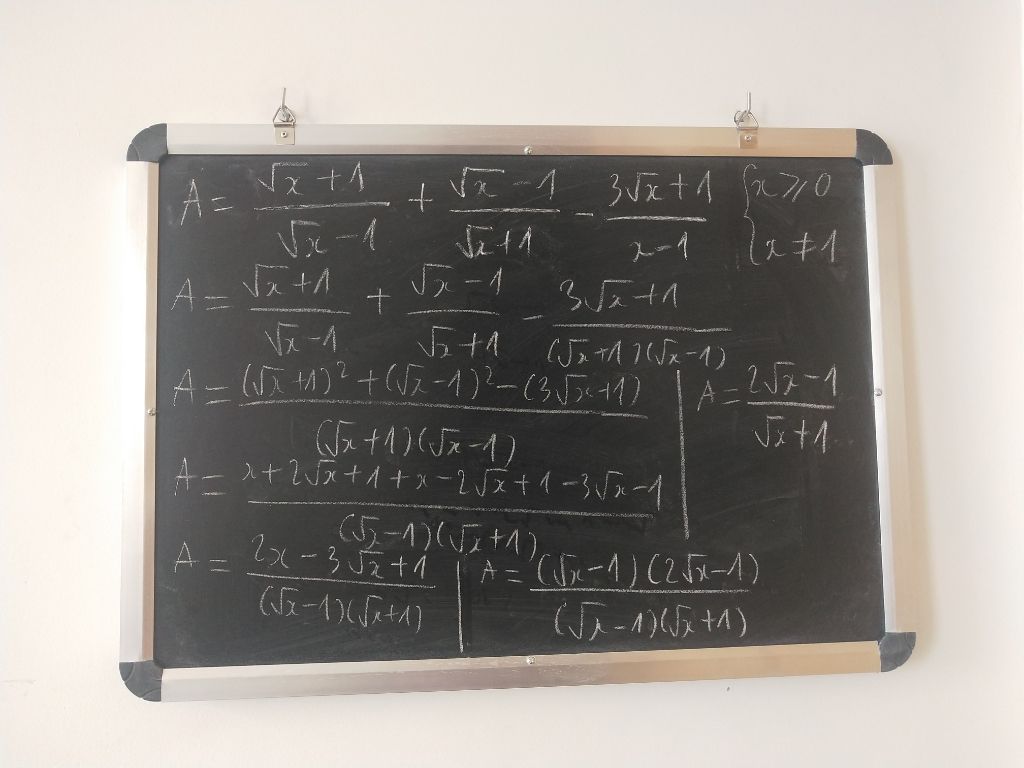 A = (√x + 1)/(√x − 1) + (√x − 1)/(√x + 1) − (3√x + 1)/(x − 1) { x ⩾ 0
{ x ≠ 1
A = (√x + 1)/(√x − 1) + (√x − 1)/(√x + 1) − (3√x + 1)/((√x + 1)(√x − 1))
A = ((√x + 1)² + (√x − 1)² − (3√x + 1))/((√x + 1)(√x − 1))
A = (x + 2√x + 1 + x − 2√x + 1 − 3√x − 1)/((√x − 1)(√x + 1))
A = (2x − 3√x + 1)/((√x − 1)(√x + 1))
A = ((√x − 1)(2√x − 1))/((√x − 1)(√x + 1))
A = (2√x − 1)/(√x + 1)